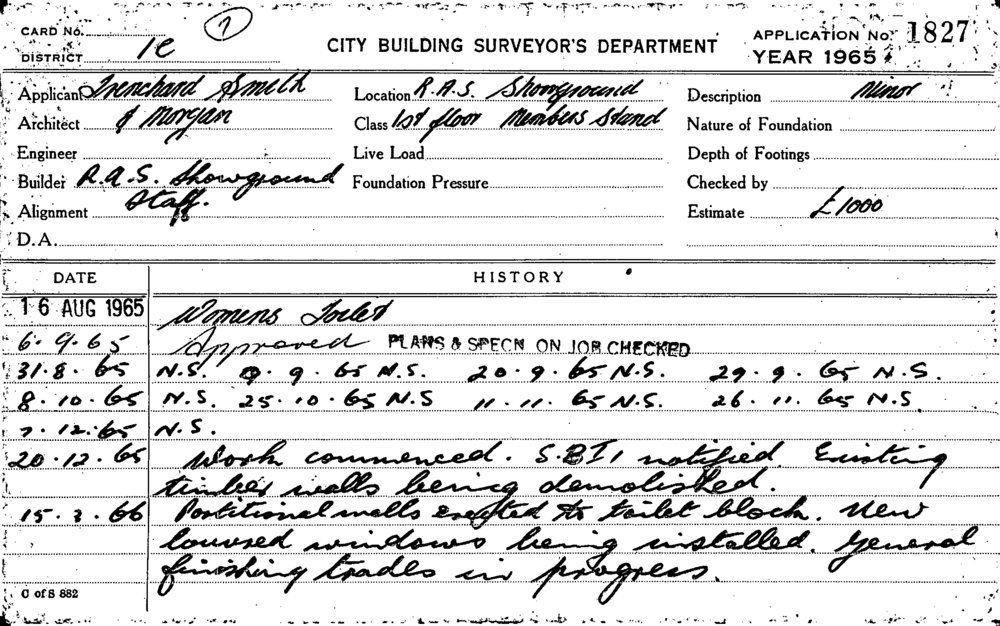 CARD No.
7
DISTRICT 1E
CITY BUILDING SURVEYOR'S DEPARTMENT
APPLICATION No. 1827
YEAR 1965
Applicant Trenchard Smith
Architect & Morgan
Engineer
Builder R.A.S. Showground
Staff.
Alignment
D.A.
Location R.A.S. Showground
Class 1st floor Members Stand
Live Load
Foundation Pressure
Description Minor
Nature of Foundation
Depth of Footings
Checked by
Estimate £1000
DATE HISTORY
16 AUG 1965 Womens Toilet
6.9.65 Approved PLANS & SPECN ON JOB CHECKED
31.8.65 N.S. 9.9.65 N.S. 20.9.65 N.S. 29.9.65 N.S.
8.10.65 N.S. 25.10.65 N.S 11.11.65 N.S. 26.11.65 N.S.
7.12.65 N.S.
20.12.65 Work commenced. S.B.I. notified. Existing
timber walls being demolished.
15.3.66 Partitional walls erected to toilet block. New
louvred windows being installed. General
finishing trades in progress.
C of S 882